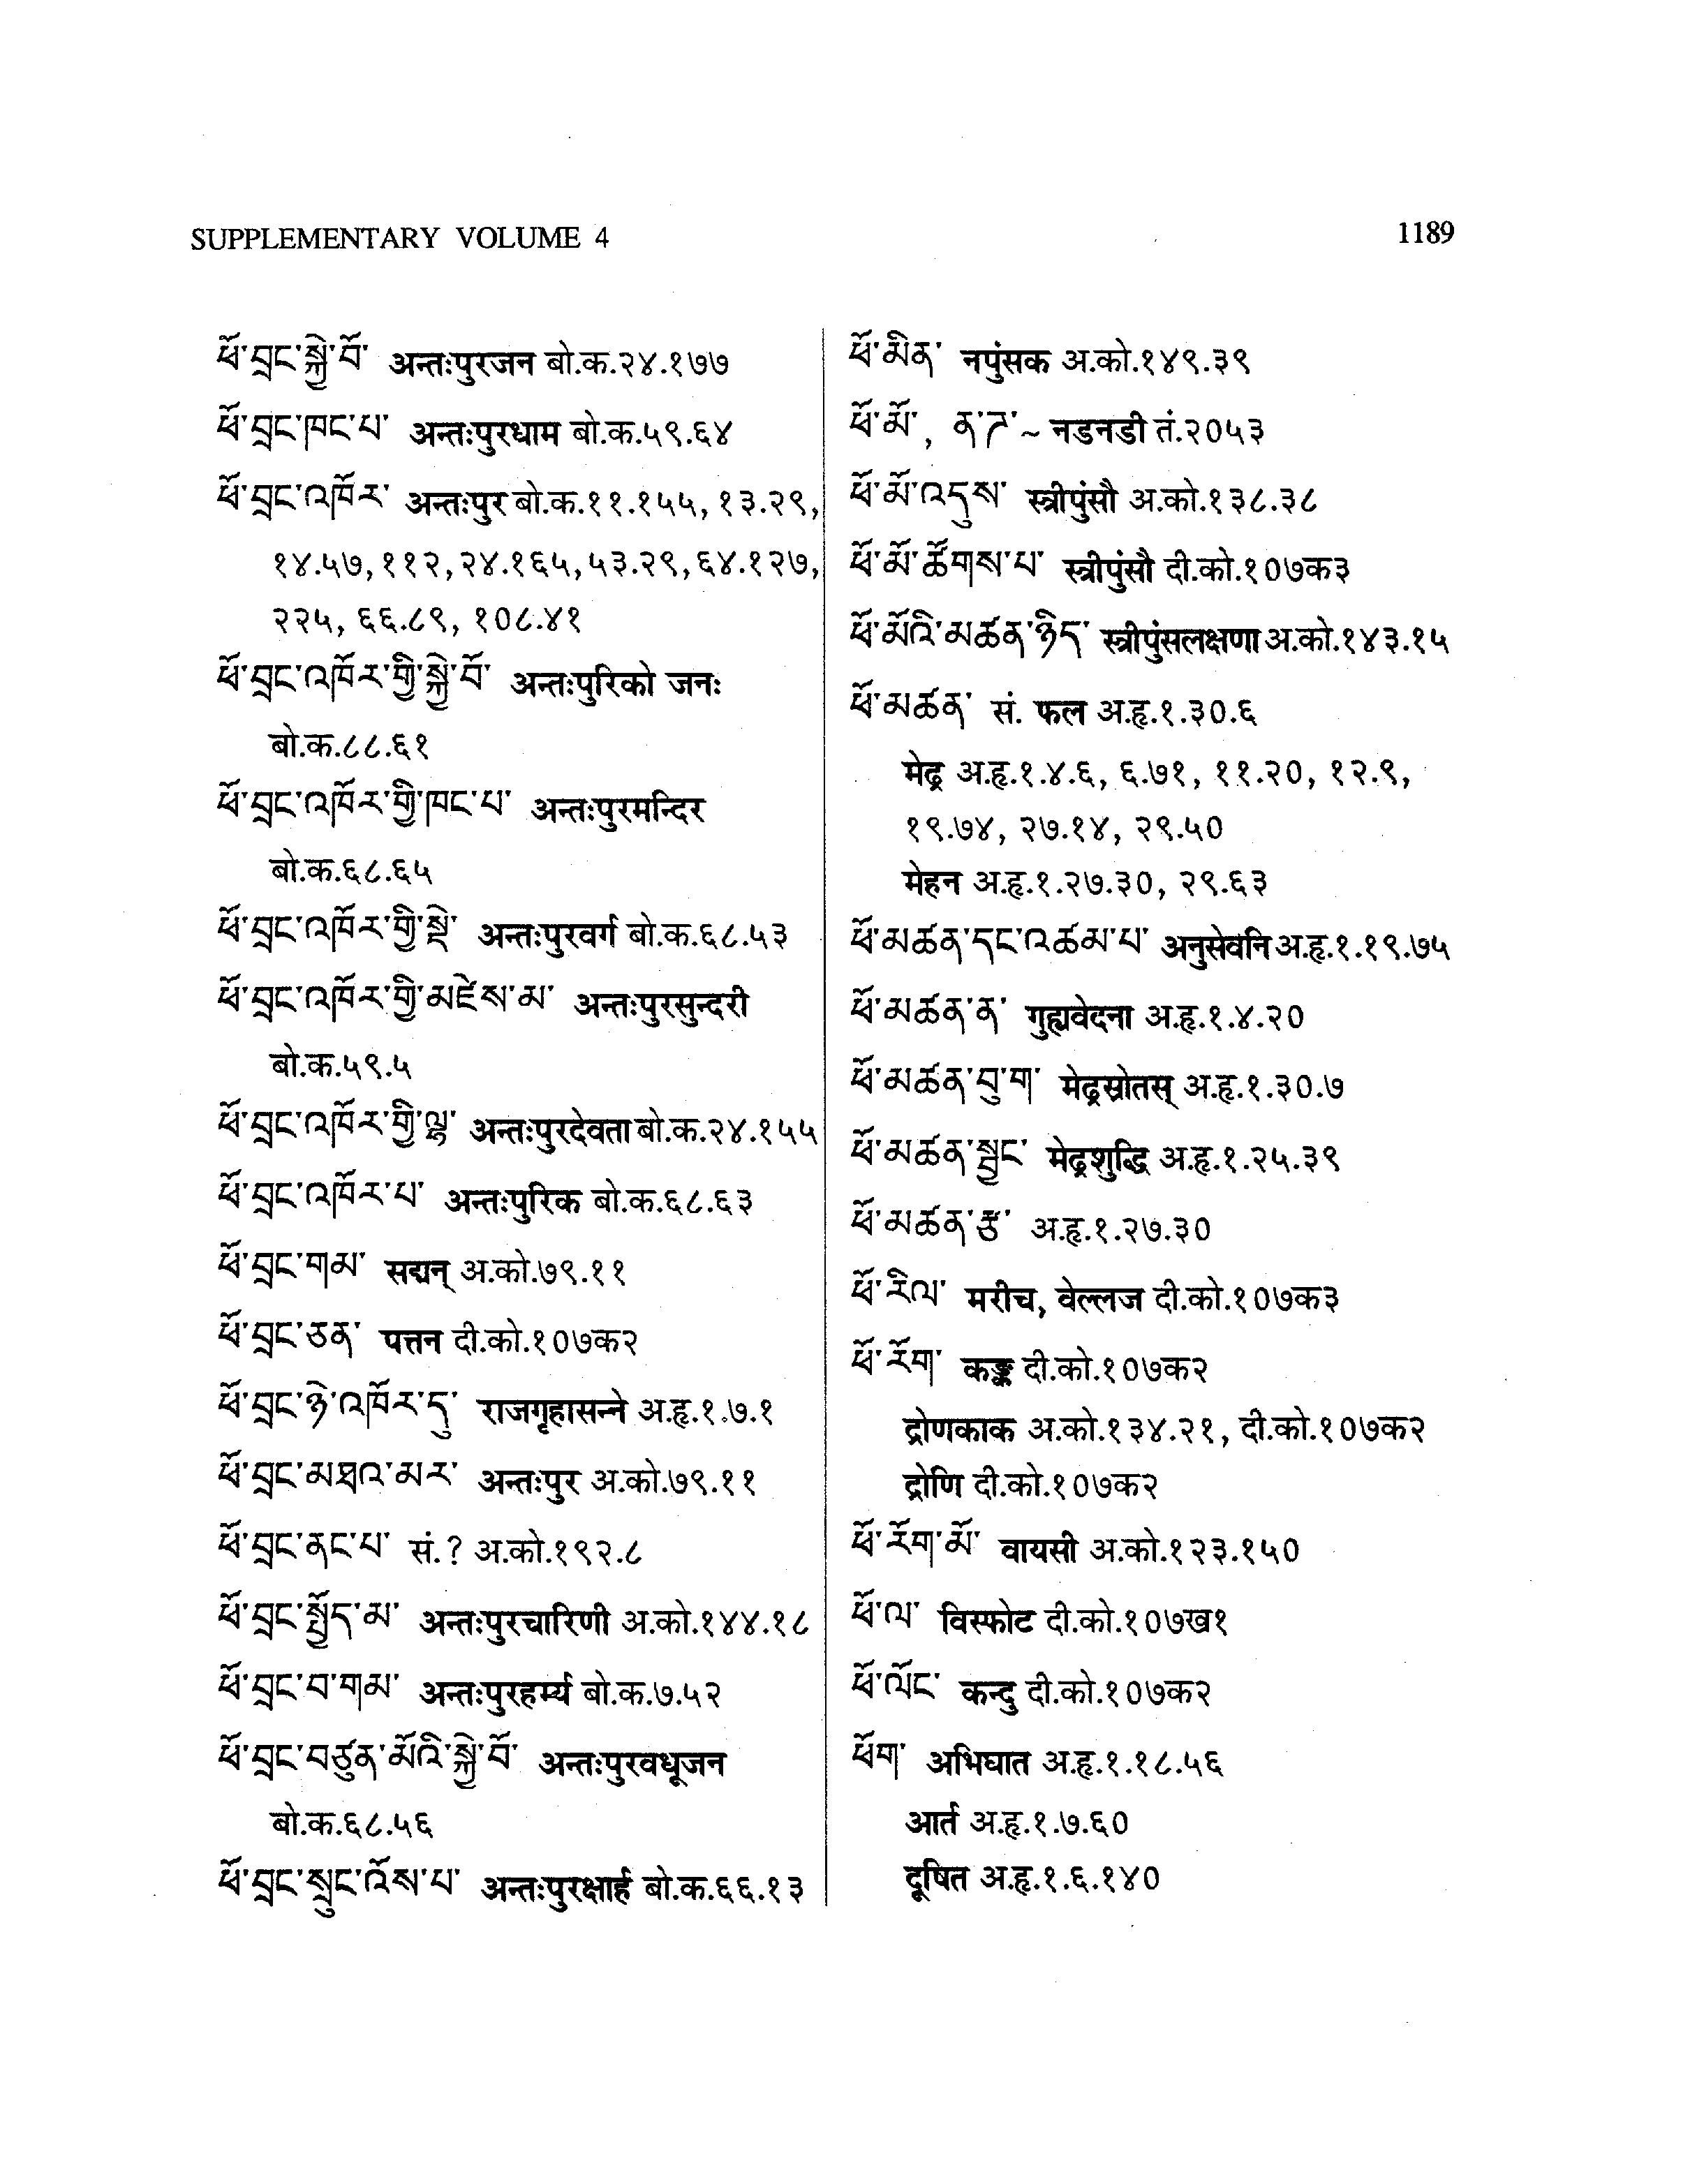 SUPPLEMENTARY VOLUME 4
1189
ཕོ་བྲང་སྐྱེ་བོ་ अन्तःपुरजन बो.क.२४.१७७
ཕོ་བྲང་ཁང་པ་ अन्तःपुरधाम बो.क.५९.६४
ཕོ་བྲང་འཁོར་ अन्तःपुर बो.क.११.१५५, १३.२९,
१४.५७, ११२, २४.१६५, ५३.२९, ६४.१२७,
२२५, ६६.८९, १०८.४१
ཕོ་བྲང་འཁོར་གྱི་སྐྱེ་བོ་ अन्तःपुरिको जनः
बो.क.८८.६१
ཕོ་བྲང་འཁོར་གྱི་ཁང་པ་ अन्तःपुरमन्दिर
बो.क.६८.६५
ཕོ་བྲང་འཁོར་གྱི་སྡེ་ अन्तःपुरवर्ग बो.क.६८.५३
ཕོ་བྲང་འཁོར་གྱི་མཛེས་མ་ अन्तःपुरसुन्दरी
बो.क.५९.५
ཕོ་བྲང་འཁོར་གྱི་ལྷ་ अन्तःपुरदेवता बो.क.२४.१५५
ཕོ་བྲང་འཁོར་པ་ अन्तःपुरिक बो.क.६८.६३
ཕོ་བྲང་གམ་ सद्मन् अ.को.७९.११
ཕོ་བྲང་ཅན་ पत्तन दी.को.१०७क२
ཕོ་བྲང་ཉེ་འཁོར་དུ་ राजगृहासन्ने अ.हृ.१.७.१
ཕོ་བྲང་མཐའ་མར་ अन्तःपुर अ.को.७९.११
ཕོ་བྲང་ནང་པ་ सं.? अ.को.१९२.८
ཕོ་བྲང་སྤྱོད་མ་ अन्तःपुरचारिणी अ.को.१४४.१८
ཕོ་བྲང་བ་གམ་ अन्तःपुरहर्म्य बो.क.७.५२
ཕོ་བྲང་བཙུན་མོའི་སྐྱེ་བོ་ अन्तःपुरवधूजन
बो.क.६८.५६
ཕོ་བྲང་སྲུང་འོས་པ་ अन्तःपुरक्षार्ह बो.क.६६.१३
ཕོ་མིན་ नपुंसक अ.को.१४९.३९
ཕོ་མོ་, ན་ཌ་~ नडनडी तं.२०५३
ཕོ་མོ་འདུས་ स्त्रीपुंसौ अ.को.१३८.३८
ཕོ་མོ་ཚོགས་པ་ स्त्रीपुंसौ दी.को.१०७क३
ཕོ་མོའི་མཚན་ཉིད་ स्त्रीपुंसलक्षणा अ.को.१४३.१५
ཕོ་མཚན་ सं. फल अ.हृ.१.३०.६
मेढ्र अ.हृ.१.४.६, ६.७१, ११.२०, १२.९,
१९.७४, २७.१४, २९.५०
मेहन अ.हृ.१.२७.३०, २९.६३
ཕོ་མཚན་དང་འཚམ་པ་ अनुसेवनि अ.हृ.१.१९.७५
ཕོ་མཚན་ན་ गुह्यवेदना अ.हृ.१.४.२०
ཕོ་མཚན་བུ་ག་ मेढ्रस्रोतस् अ.हृ.१.३०.७
ཕོ་མཚན་སྦྱང་ मेढ्रशुद्धि अ.हृ.१.२५.३९
ཕོ་མཚན་རྩ་ अ.हृ.१.२७.३०
ཕོ་རིལ་ मरीच, वेल्लज दी.को.१०७क३
ཕོ་རོག་ कङ्क दी.को.१०७क२
द्रोणकाक अ.को.१३४.२१, दी.को.१०७क२
द्रोणि दी.को.१०७क२
ཕོ་རོག་མོ་ वायसी अ.को.१२३.१५०
ཕོ་ལ་ विस्फोट दी.को.१०७ख१
ཕོ་ལོང་ कन्दु दी.को.१०७क२
ཕོག་ अभिघात अ.हृ.१.१८.५६
आर्त अ.हृ.१.७.६०
दूषित अ.हृ.१.६.१४०